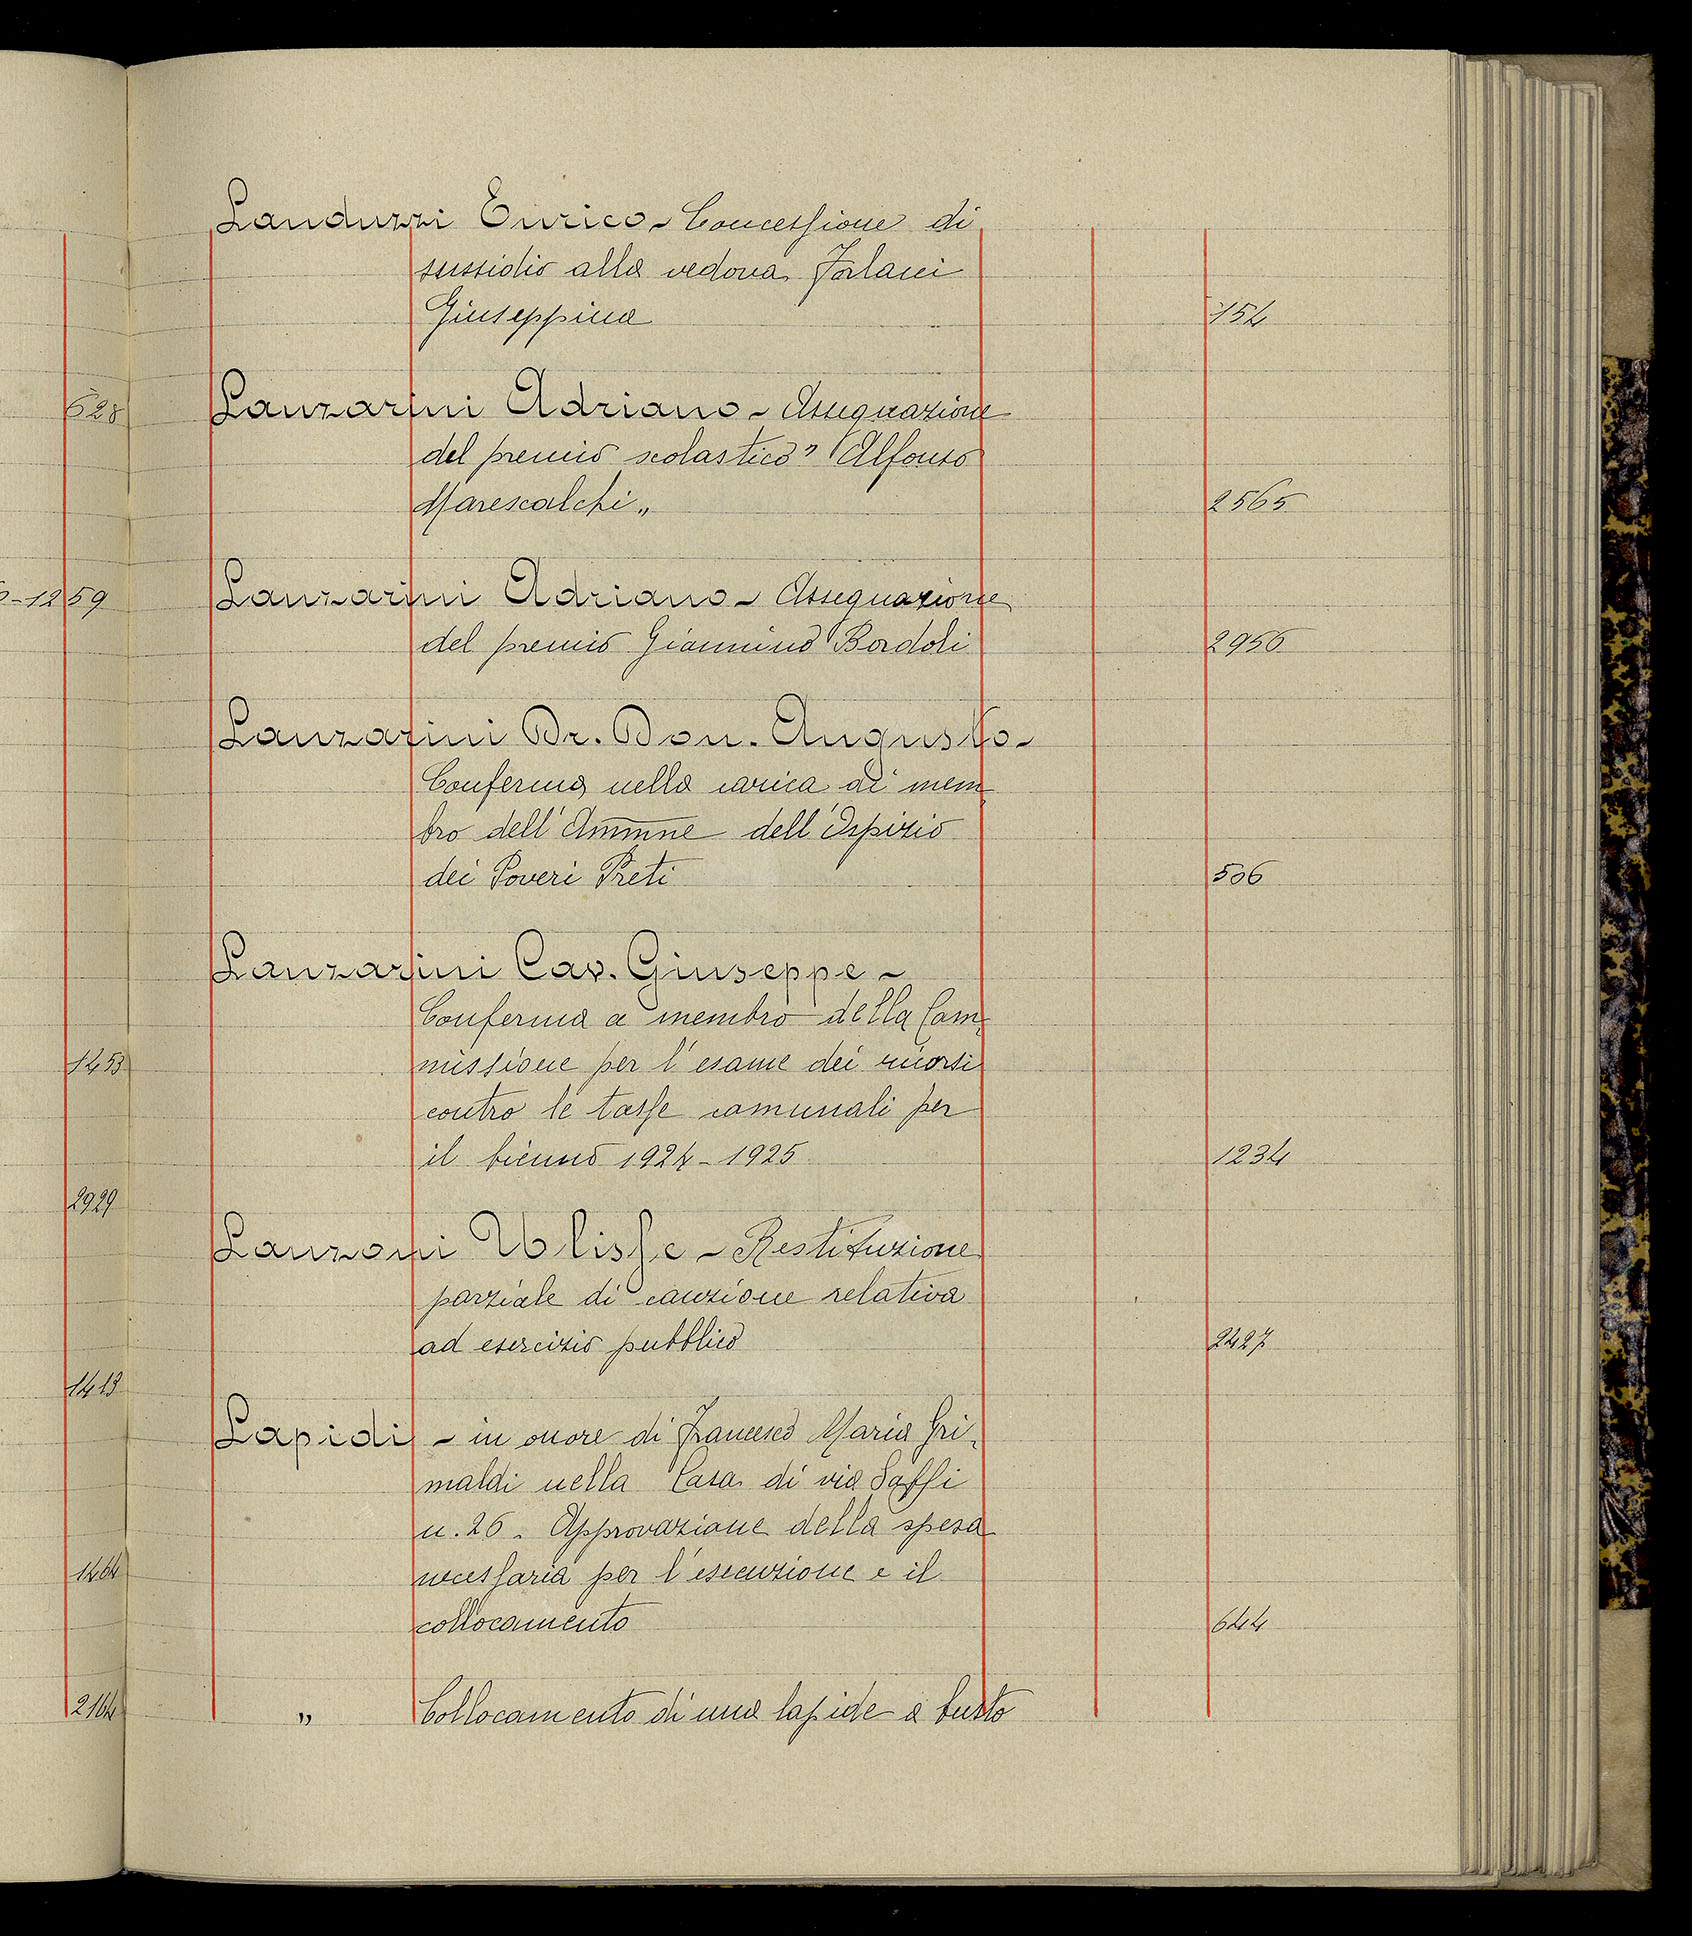 Landuzzi Enrico - Concessione di
sussidio alla vedova Forlani
Giuseppina 154
Lanzarini Adriano - Assegnazione
del premio scolastico " Alfonso
Marescalchi „ 2565
Lanzarini Adriano - Assegnazione
del premio Giannino Bordoli 2956
Lanzarini Dr. Don. Augusto -
Conferma nella carica di mem-
bro dell'Ammne dell'Ospizio
dei Poveri Preti 506
Lanzarini Cav. Giuseppe -
Conferma a membro della Com-
missione per l'esame dei ricorsi
contro le tasse comunali per
il biennio 1924 - 1925 1234
Lanzoni Ulisse - Restituzione
parziale di cauzione relativa
ad esercizio pubblico 2427
Lapidi - in onore di Francesco Maria Gri-
maldi nella Casa di via Saffi
n. 26. Approvazione della spesa
necessaria per l'esecuzione e il
collocamento 644
„ Collocamento di una lapide a busto
628
-1259
1453
2929
1413
1464
2164